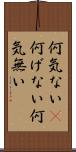 何気ない
何げない何
気無い